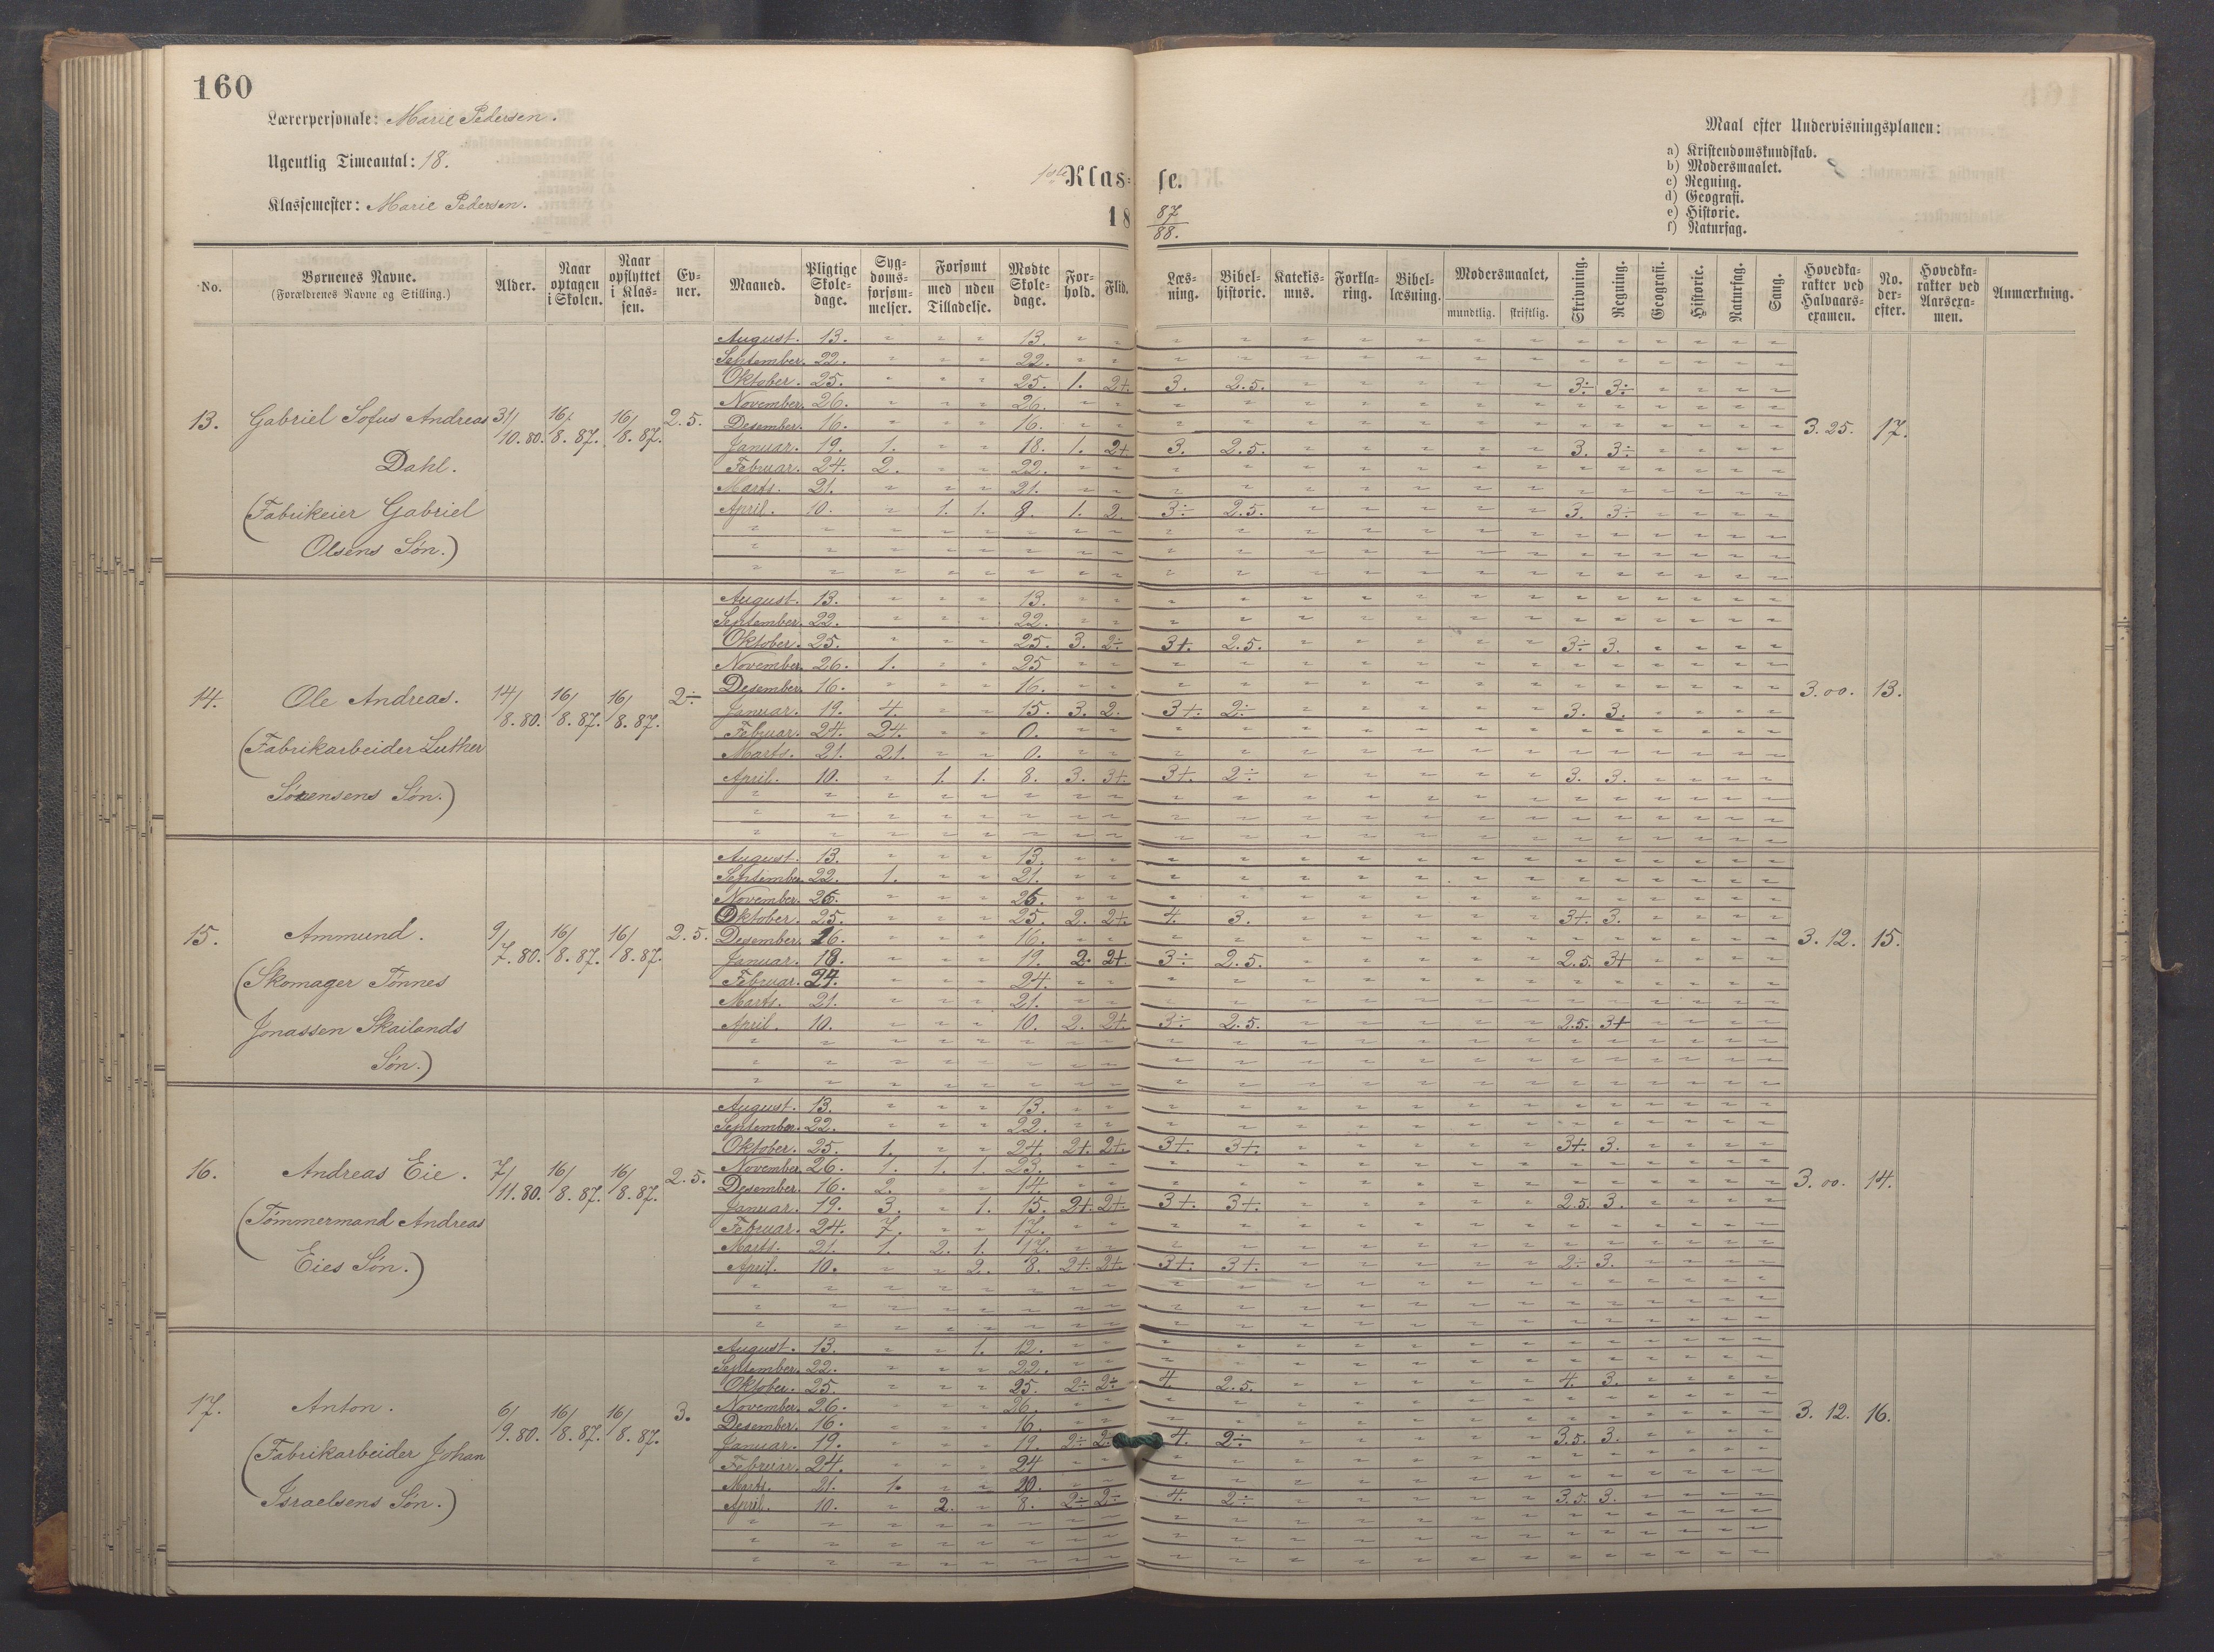 160
Lærerpersonale: Marie Pedersen.
Ugentlig Timeantal: 18.
Klassemester: Marie Pedersen.
1ste Klasse.
1887/88.
Maal efter Undervisningsplanen:
a) Kristendomskundskab.
b) Modersmaalet.
c) Regning.
d) Geografi.
e) Historie.
f) Naturfag.
No. | Børnenes Navne. (Forældrenes Navne og Stilling.) | Alder. | Naar optagen i Skolen. | Naar opflyttet i Klassen. | Evner. | Maaned. | Pligtige Skoledage. | Sygdomsforsømmelser. | Forsømt med Tilladelse. | Forsømt uden Tilladelse. | Mødte Skoledage. | Forhold. | Flid. | Læsning. | Bibelhistorie. | Katekismus. | Forklaring. | Bibellæsning. | Modersmaalet, mundtlig. | skriftlig. | Skrivning. | Regning. | Geografi. | Historie. | Naturfag. | Sang. | Hovedkarakter ved Halvaarsexamen. | No. derefter. | Hovedkarakter ved Aarsexamen. | Anmærkning.
13. Gabriel Sofus Andreas Dahl. 31/10.80. 16/8.87. 16/8.87. 2.5. 3.25. 17.
(Fabrikeier Gabriel
Olsens Søn.)
August. 13. 13.
September. 22. 22.
Oktober. 25. 25. 1. 2+. 3. 2.5. 3÷ 3÷
November. 26. 26.
Desember. 16. 16.
Januar. 19. 1. 18. 1. 2+ 3. 2.5. 3. 3÷
Februar. 24. 2. 22.
Marts. 21. 21.
April. 10. 1. 1. 8. 1. 2. 3÷ 2.5. 3. 3÷
14. Ole Andreas. 14/8.80. 16/8.87. 16/8.87. 2÷ 3.00. 13.
(Fabrikarbeider Luther
Sørensens Søn.)
August. 13. 13.
September. 22. 22.
Oktober. 25. 25. 3. 2÷ 3+. 2.5. 3÷ 3.
November. 26. 1. 25
Desember. 16. 16.
Januar. 19. 4. 15. 3. 2. 3+. 2÷ 3. 3.
Februar. 24. 24. 0.
Marts. 21. 21. 0.
April. 10. 1. 1. 8. 3. 3+. 3+. 2÷ 3. 3.
15. Ammund. 9/7.80. 16/8.87. 16/8.87. 2.5. 3.12. 15.
(Skomager Tønnes
Jonassen Skailands
Søn.)
August. 13. 13.
September. 22. 1. 21.
November. 26. 26.
Oktober. 25. 25. 2. 2+. 4. 3. 3+. 3.
Desember. 16. 16.
Januar. 19. 2. 2+ 3÷ 2.5. 2.5. 3+
Februar. 24. 24.
Marts. 21. 21.
April. 10. 10. 2. 2+. 3÷ 2.5. 2.5. 3+
16. Andreas Eie. 7/11.80. 16/8.87. 16/8.87. 2.5. 3.00. 14.
(Tømmermand Andreas
Eies Søn.)
August. 13. 13.
September. 22. 22.
Oktober. 25. 1. 24. 2+. 2+. 3+. 3+. 3+. 3.
November. 26. 1. 1. 1. 23.
Desember. 16. 2. 14.
Januar. 19. 3. 1. 15. 2+. 2+. 3+. 3+. 2.5. 3.
Februar. 24. 7. 17.
Marts. 21. 1. 2. 1. 17.
April. 10. 2. 8. 2+. 2+. 3+. 3+. 2÷ 3.
17. Anton. 6/9.80. 16/8.87. 16/8.87. 3. 3.12. 16.
(Fabrikarbeider Johan
Israelsens Søn.)
August. 13. 1. 12.
September. 22. 22.
Oktober. 25. 25. 2÷ 2÷ 4. 2.5. 4. 3.
November. 26. 26.
Desember. 16. 16.
Januar. 19. 19. 2÷ 4. 2÷ 3.5. 3.
Februar. 24. 24
Marts. 21. 1. 20.
April. 10. 2. 8. 2÷ 2÷ 4. 2÷ 3.5. 3.